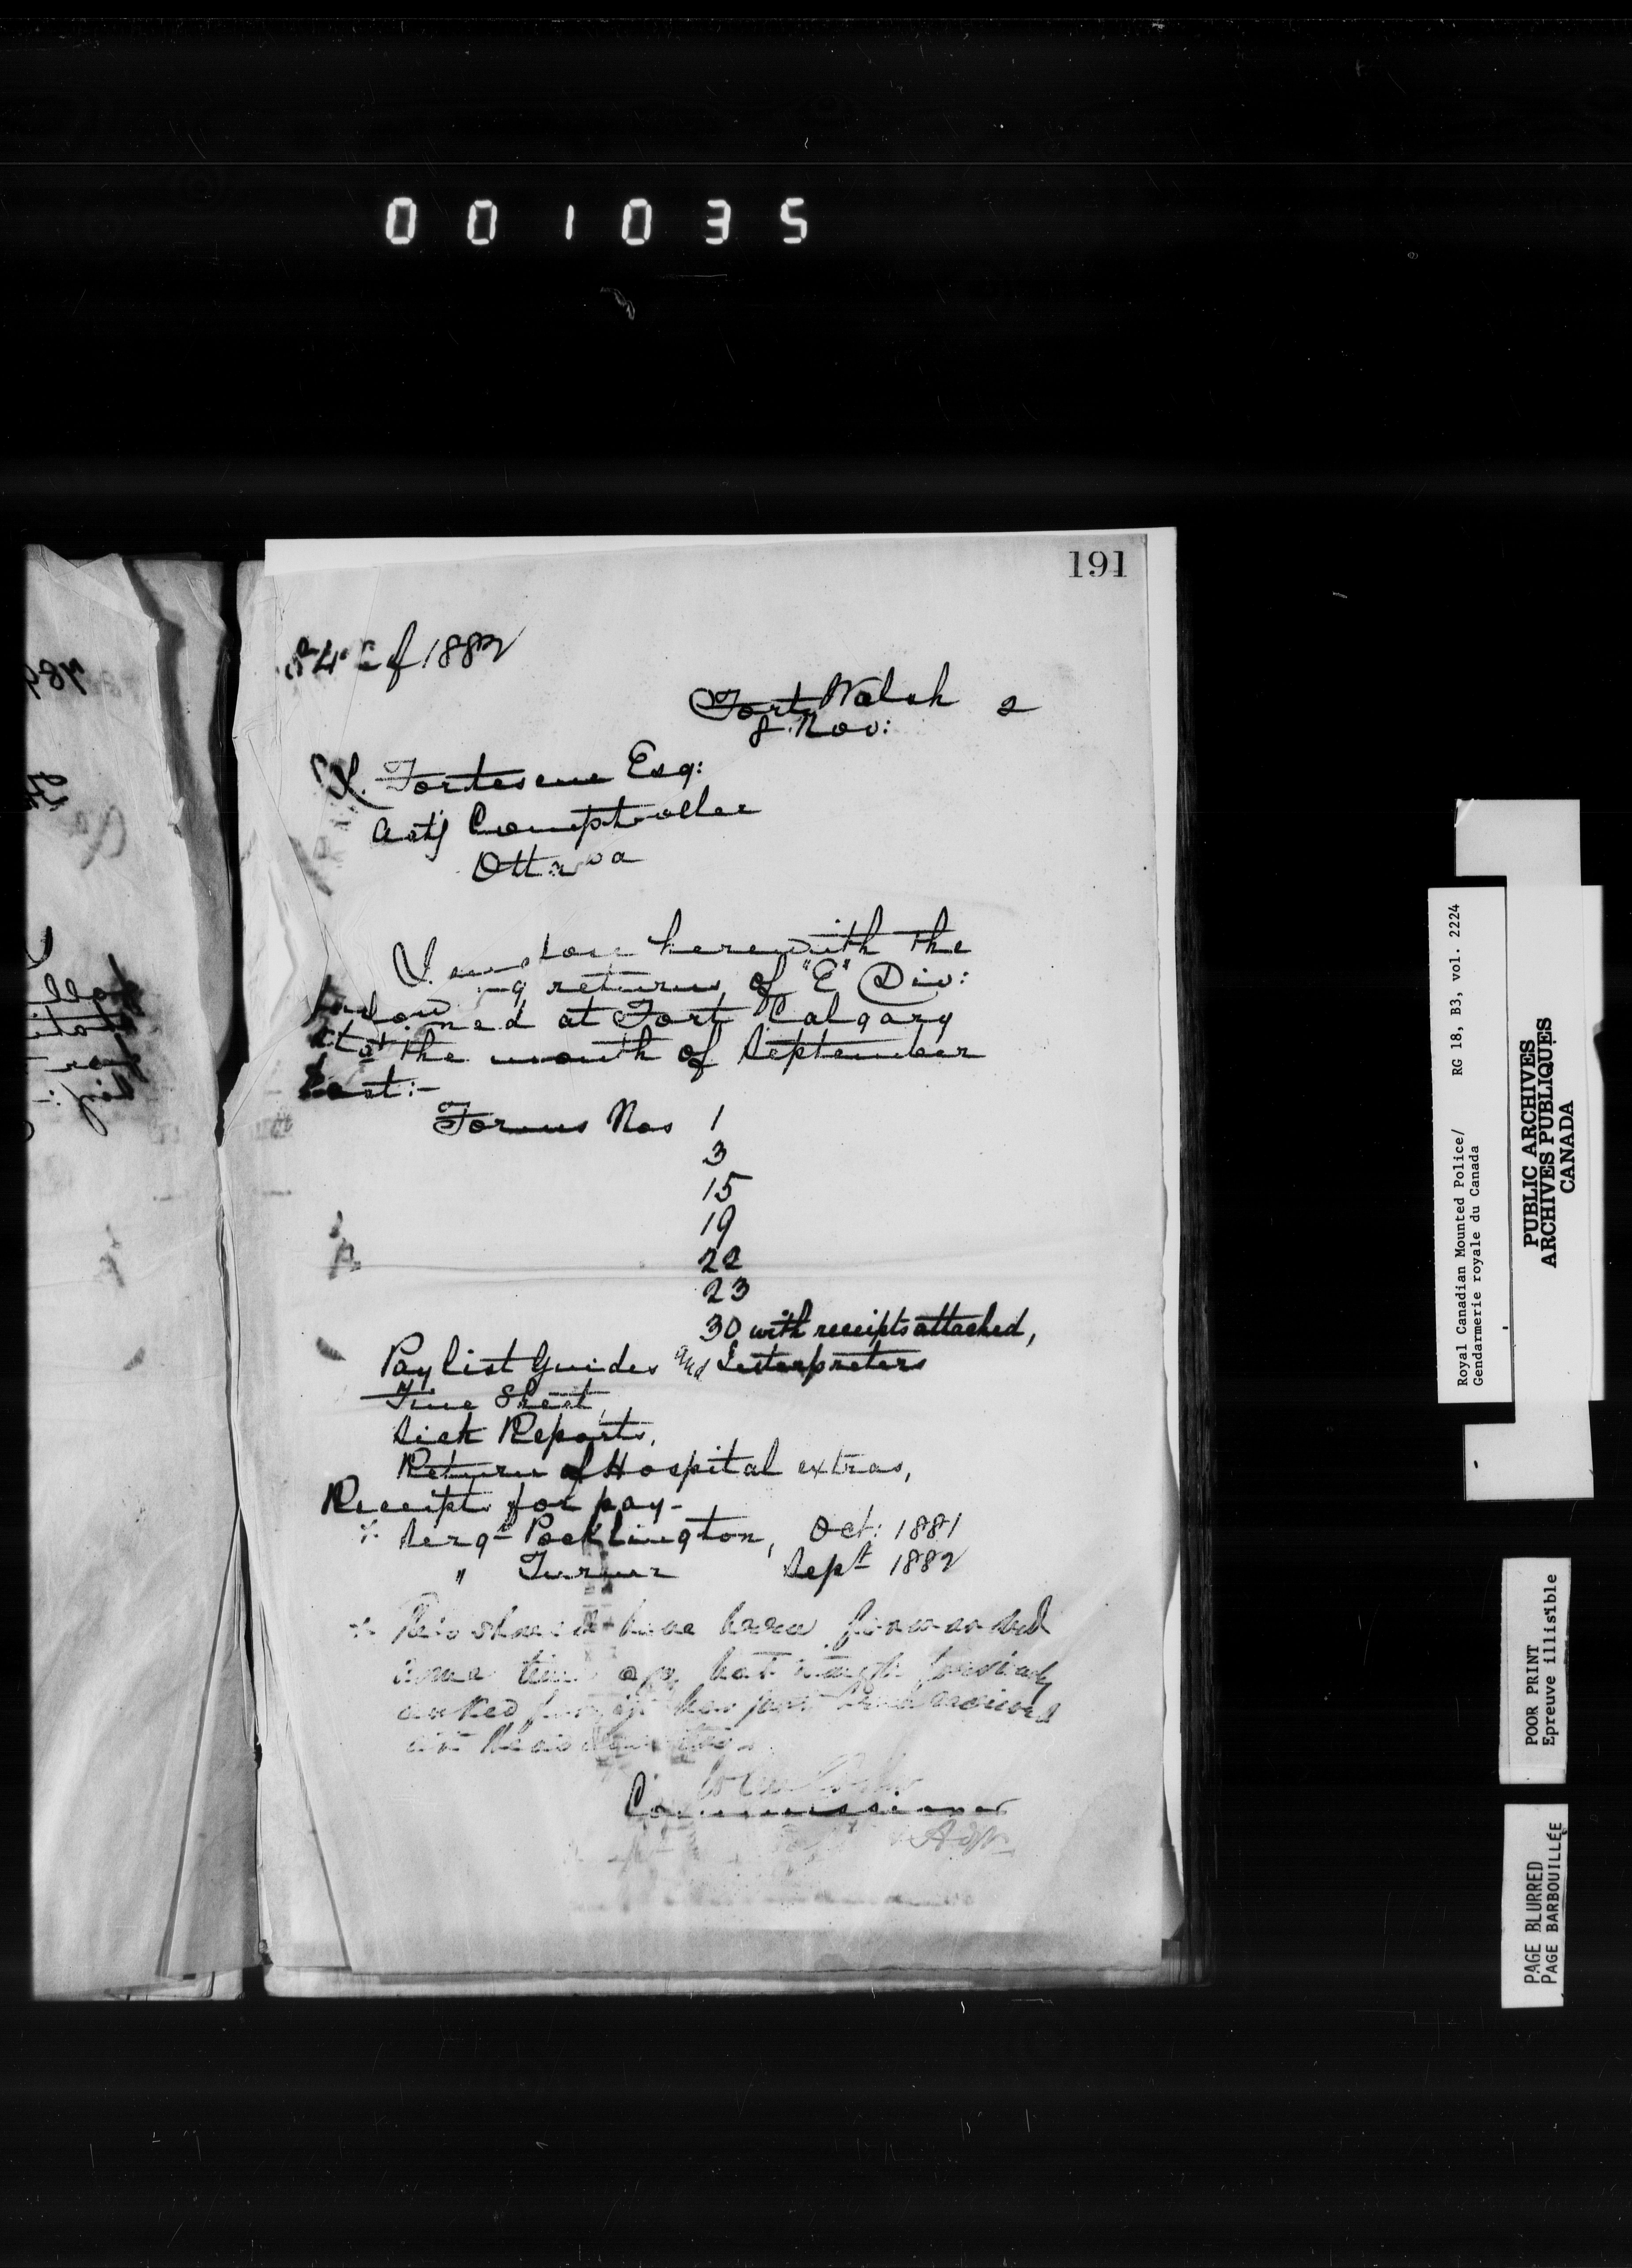 001035
191
of 1882
Fort Walsh 2
8 Nov:
L. Fortescue Esq:
Actg Comptroller
Ottawa
I enclose herewith the
following returns of "E" Div:
stationed at Fort Calgary
for the month of September
last:-
Forms Nos 1
3
15
19
22
23
30 with receipts attached,
Pay list Guides and Interpreters
Time Sheet,
Sick Reports,
Return of Hospital extras,
Receipts for pay-
Sergt Pocklington, Oct: 1881
" Turner Sept 1882
This should have been forwarded
some time ago, but
asked for, it has just been received
at
Commissioner
Royal Canadian Mounted Police/ RG 18, B3, vol. 2224
Gendarmerie royale du Canada
PUBLIC ARCHIVES
ARCHIVES PUBLIQUES
CANADA
POOR PRINT
Epreuve illisible
PAGE BLURRED
PAGE BARBOUILLÉE